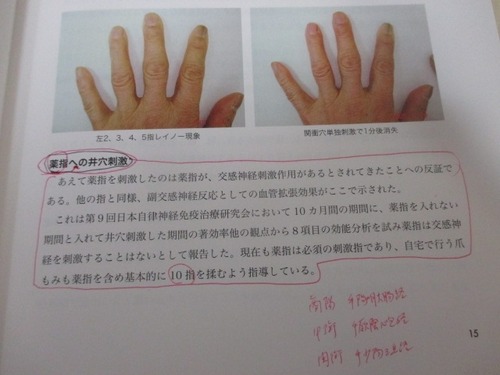 左2、3、4、5指レイノー現象
関衝穴単独刺激で1分後消失
薬指への井穴刺激
あえて薬指を刺激したのは薬指が、交感神経刺激作用があるとされてきたことへの反証で
ある。他の指と同様、副交感神経反応としての血管拡張効果がここで示された。
これは第9回日本自律神経免疫治療研究会において10カ月間の期間に、薬指を入れない
期間と入れて井穴刺激した期間の著効率他の観点から8項目の効能分析を試み薬指は交感神
経を刺激することはないとして報告した。現在も薬指は必須の刺激指であり、自宅で行う爪
もみも薬指を含め基本的に10指を揉むよう指導している。
商陽
中衝
関衝
15